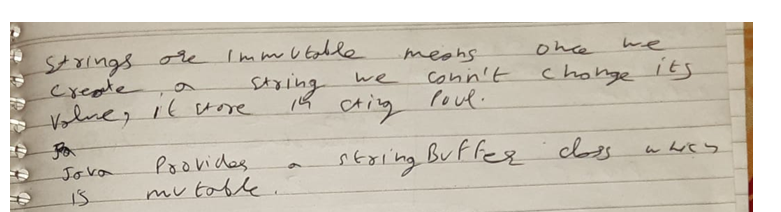 Strings are Immutable means once we
create a string we conn't change its
value, it store in sting Poul.
Java Provides a stringBuffer class which
is mutable.